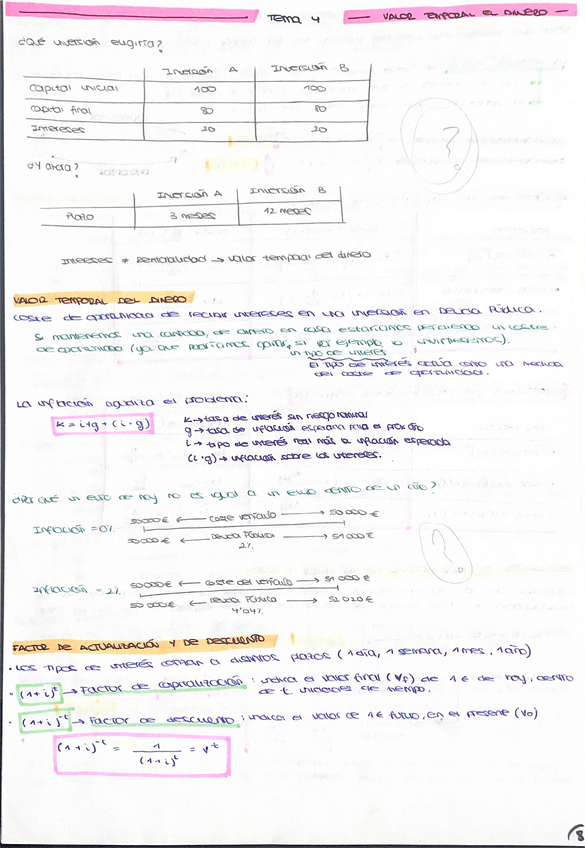 TEMA 4 — VALOR TEMPORAL EL DINERO —
¿Qué inversión eligiría?
Inversión A Inversión B
Capital inicial 100 100
Capital final 80 80
Intereses 20 20
¿Y ahora?
Inversión A Inversión B
Plazo 3 meses 12 meses
Intereses ≠ Rentabilidad → Valor temporal del dinero
VALOR TEMPORAL DEL DINERO
Coste de oportunidad de recibir intereses en una inversión en Deuda Pública.
Si mantenemos una cantidad de dinero en casa estaríamos perdiendo un coste
de oportunidad (ya que podríamos ganar, si por ejemplo lo invirtieramos).
un tipo de interés
El tipo de interés actúa como una medida
del coste de oportunidad.
La inflación agudiza el problema:
k = i+g+(i·g)
k → tasa de interés sin riesgo nominal
g → tasa de inflación esperada para el próx año
i → tipo de interés real más la inflación esperada
(i·g) → inflación sobre los intereses.
¿Por qué un euro de hoy no es igual a un euro dentro de un año?
Inflación = 0%
50000€ ← coste vehículo → 50000€
50000€ ← Deuda Pública → 51000€
2%
Inflación = 2%
50000€ ← coste del vehículo → 51000€
50000€ ← Deuda Pública → 52020€
4'04%
FACTOR DE ACTUALIZACIÓN Y DE DESCUENTO
· Los tipos de interés toman a distintos plazos (1 día, 1 semana, 1 mes, 1 año)
· (1+i)^t → Factor de capitalización: indica el valor final (Vf) de 1€ de hoy, dentro
de t unidades de tiempo.
· (1+i)^-t → Factor de descuento: indica el valor de 1€ futuro, en el presente (Vo)
(1+i)^-t = 1/(1+i)^t = v^t
?
?
8